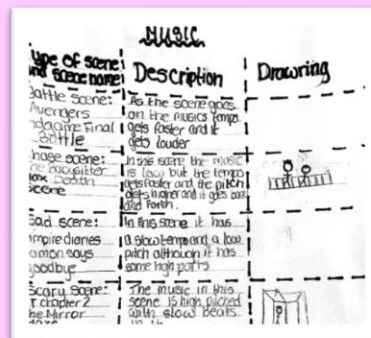 MUSIC
ype of scene
nd scene name
Description
Drawring
attle scene:
Avengers
ndgame Final
Battle
As the scene goes
on the musics tempo
gets faster and it
gets louder
hase scene:
he Babysitter
Death
scene
In this scene the music
is low but the tempo
gets faster and the pitch
gets higher and it goes bac
and forth.
Sad scene:
mpire diaries
amon says
goodbye
In this scene it has
a slow tempo and a low
pitch although it has
some high parts
Scary scene:
T chapter 2
he Mirror
The music in this
scene is high pitched
with slow beats